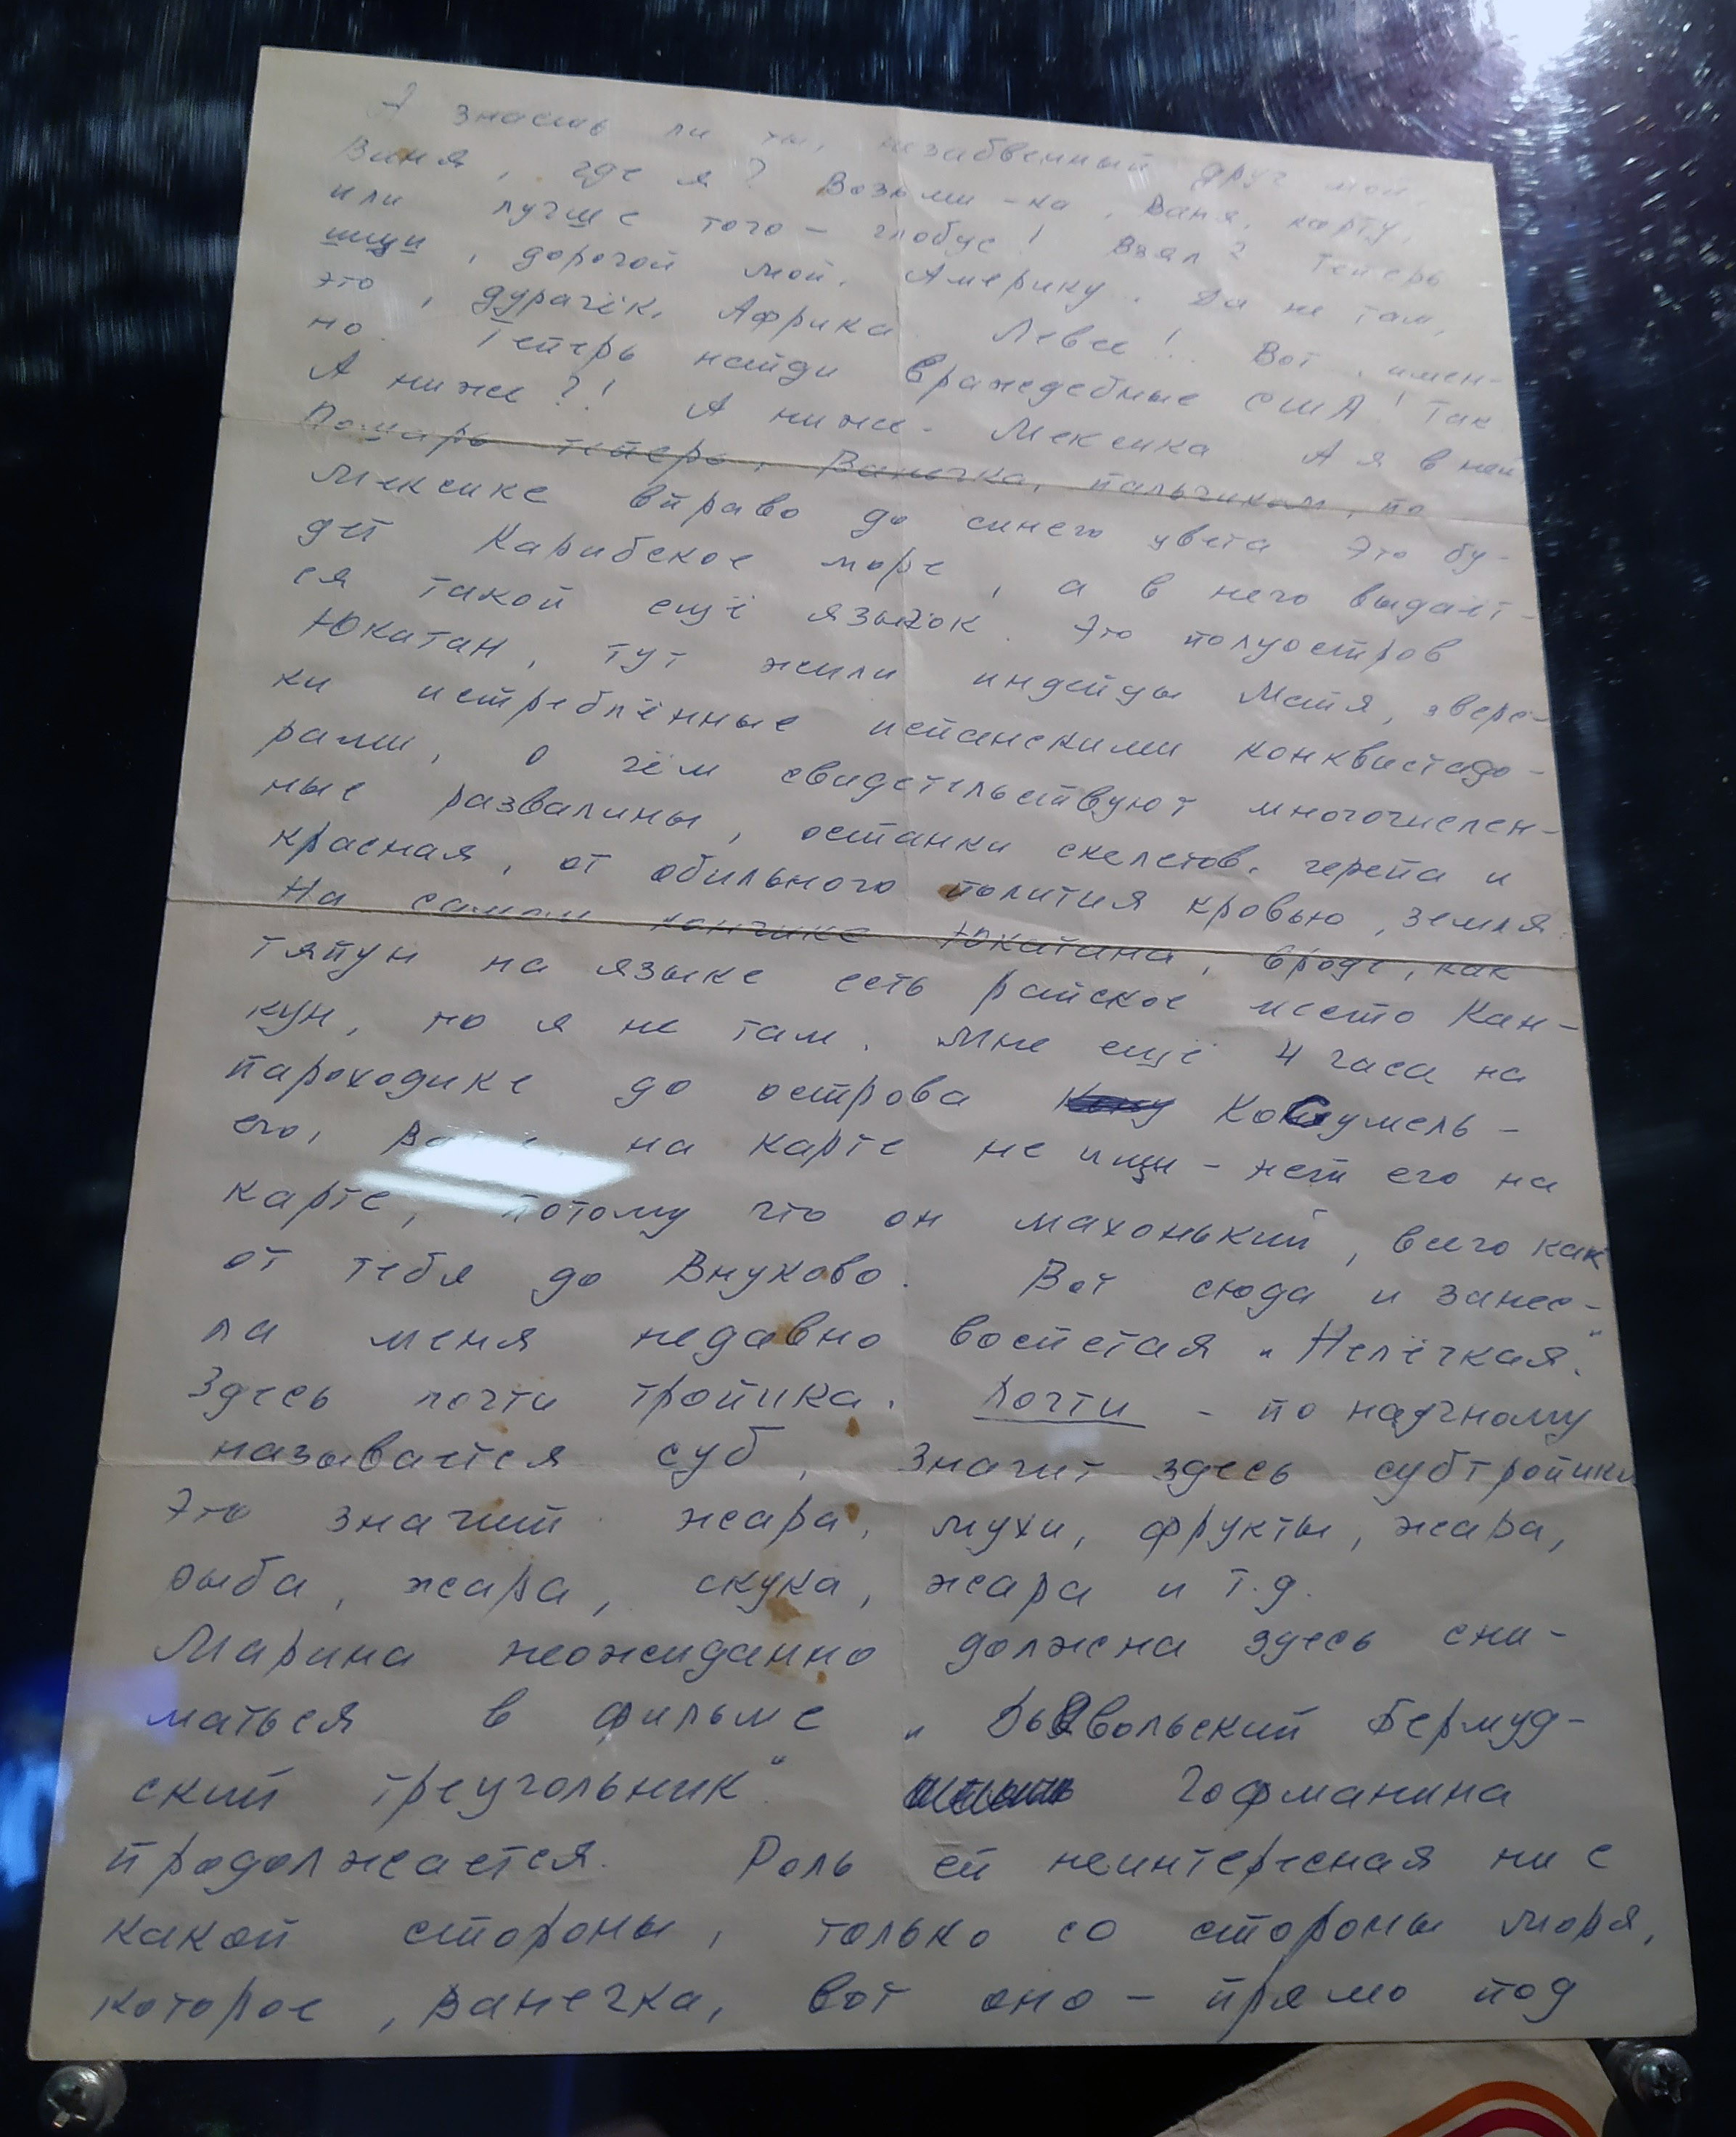 А знаешь ли ты, незабвенный друг мой,
Ваня, где я? Возьми-ка, Ваня, карту,
или лучше того – глобус! Взял? Теперь
ищи, дорогой мой, Америку. Да не там,
это, дурачёк, Африка. Левее! Вот, имен-
но. Теперь найди враждебные США! Так
А ниже?! А ниже – Мексика А я в ней
Пошарь теперь, Ванечка, пальчиком, по
Мексике вправо до синего цвета Это бу-
дет Карибское море, а в него выдаёт-
ся такой ещё язычок. Это полуостров
Юкатан, тут жили индейцы Майя, зверс-
ки истреблённые испанскими конквистадо-
рами, о чём свидетельствуют многочислен-
ные развалины, останки скелетов, черепа и
красная, от обильного полития кровью, земля.
На самом кончике Юкатана, вроде, как
типун на языке есть райское место Кан-
кун, но я не там. Мне ещё 4 часа на
пароходике до острова Косумель –
его, на карте не ищи – нет его на
карте, потому что он махонький, всего как
от тебя до Внуково. Вот сюда и занес-
ла меня недавно воспетая „Нелёгкая."
Здесь почти тропики. Почти – по научному
называется суб, Значит здесь субтропики
Это значит жара, мухи, фрукты, жара,
рыба, жара, скука, жара и т.д.
Марина неожиданно должна здесь сни-
маться в фильме „Дьявольский Бермуд-
ский треугольник" Гофманина
продолжается. Роль ей неинтересная ни с
какой стороны, только со стороны моря,
которое, Ванечка, вот оно – прямо под